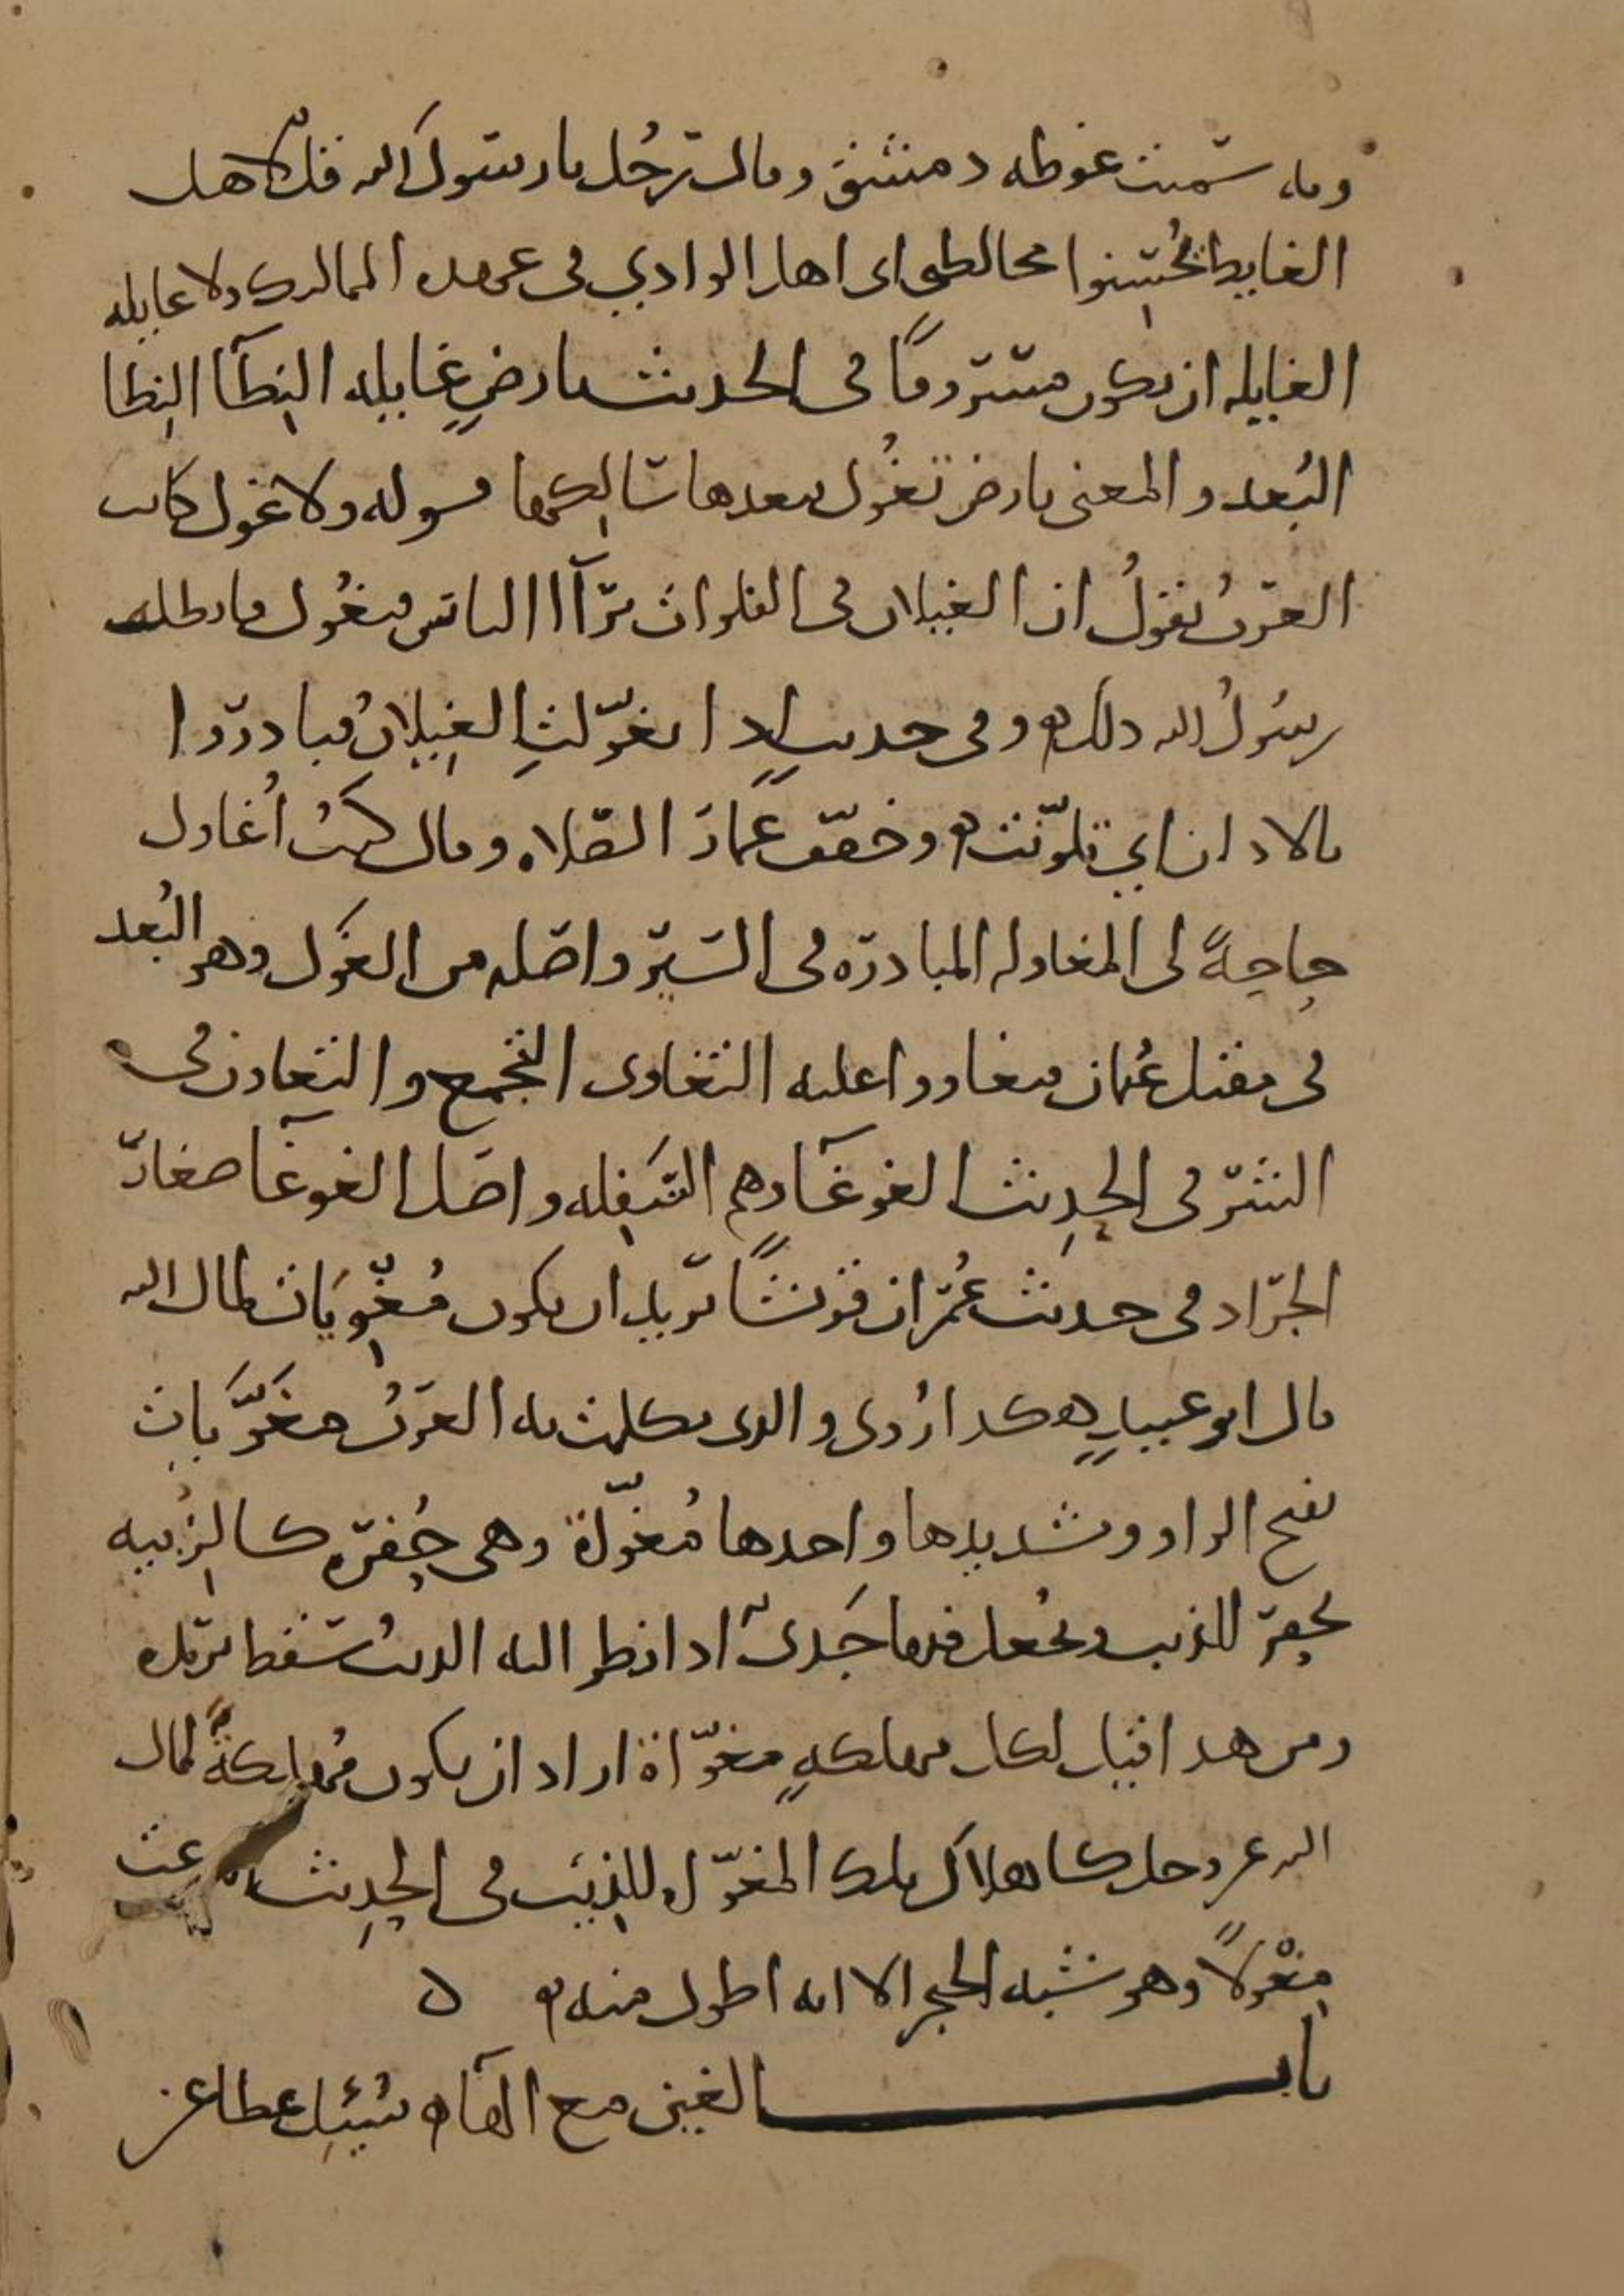 وبه سميت غوطه دمشق وقال رجل يا رسول الله قل لاهل
الغايط يحسنوا مخالطتى اى اهل الوادي فى عهده المماليك ولا غايله
الغايله ان يكون مسروقا فى الحديث بارض غايله النطآ النطا
البعد والمعنى بارض تغول ببعدها سالكها قوله ولا غول كانت
العرب تقول ان الغيلان فى الفلوات ترآاا الناس فتغول فابطل
رسول الله ذلك وفى حديث اذا تغولت الغيلان فبادروا
بالاذان اي تلونت وخفف عمار الصلاه وقال كنت أغاول
حاجة لى المغاوله المبادره فى السير واصله من الغول وهو البعد
فى مقتل عثمان فتغاووا عليه التغاوى التجمع والتعاون فى
الشر فى الحديث الغوغآ وهم السفله واصل الغوغآ صغار
الجراد فى حديث عمر ان قريشا تريد ان يكون مغويات لمال الله
قال ابو عبيد هكذا روى والذى تكلمت به العرب مغويات
بفتح الواو وتشديدها واحدها مغواة وهى حفره كالزبيه
تحفر للذيب ويجعل فيها جدى اذا نظر اليه الذيب سقط يريده
ومن هذا قيل لكل مهلكة مغواة اراد ان يكون مهلكة لمال
الله عز وجل كاهلاك تلك المغواه للذيب فى الحديث عت
مغولا وهو شبه الخنجر الا انه اطول منه ه
باب الغين مع الفاء سئل عطا عن